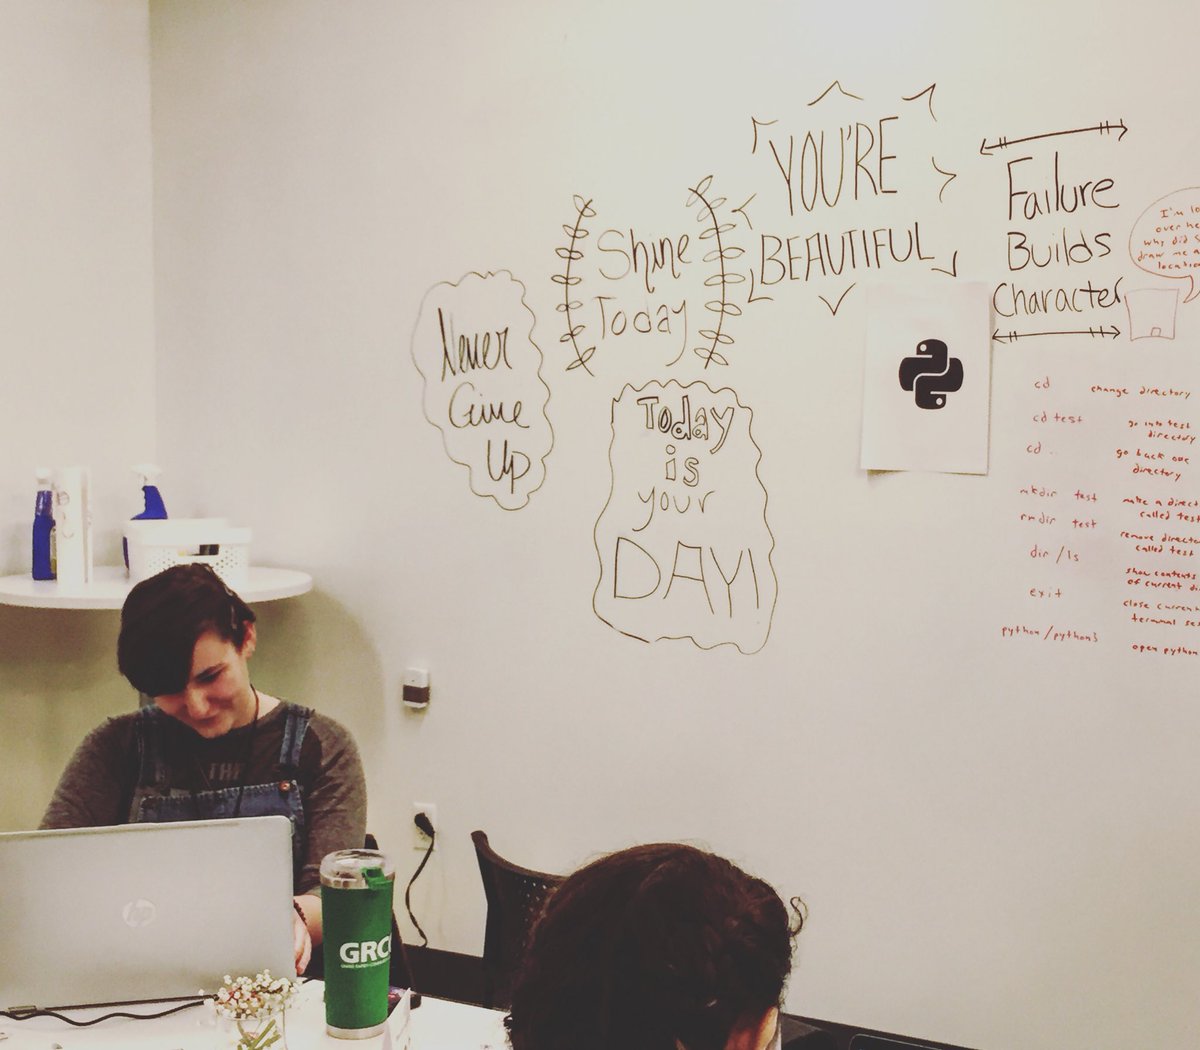 Never
Give
Up
Shine
Today
Today
is
your
DAY!
YOU'RE
BEAUTIFUL
Failure
Builds
Character
I'm
over
why did
draw me a
cd change directory
cd test go into test
directory
cd .. go back one
directory
mkdir test make a
called test
rmdir test remove
called test
dir/ls show contents
of current
exit close
terminal
python/python3 open python
THE
hp
GRC